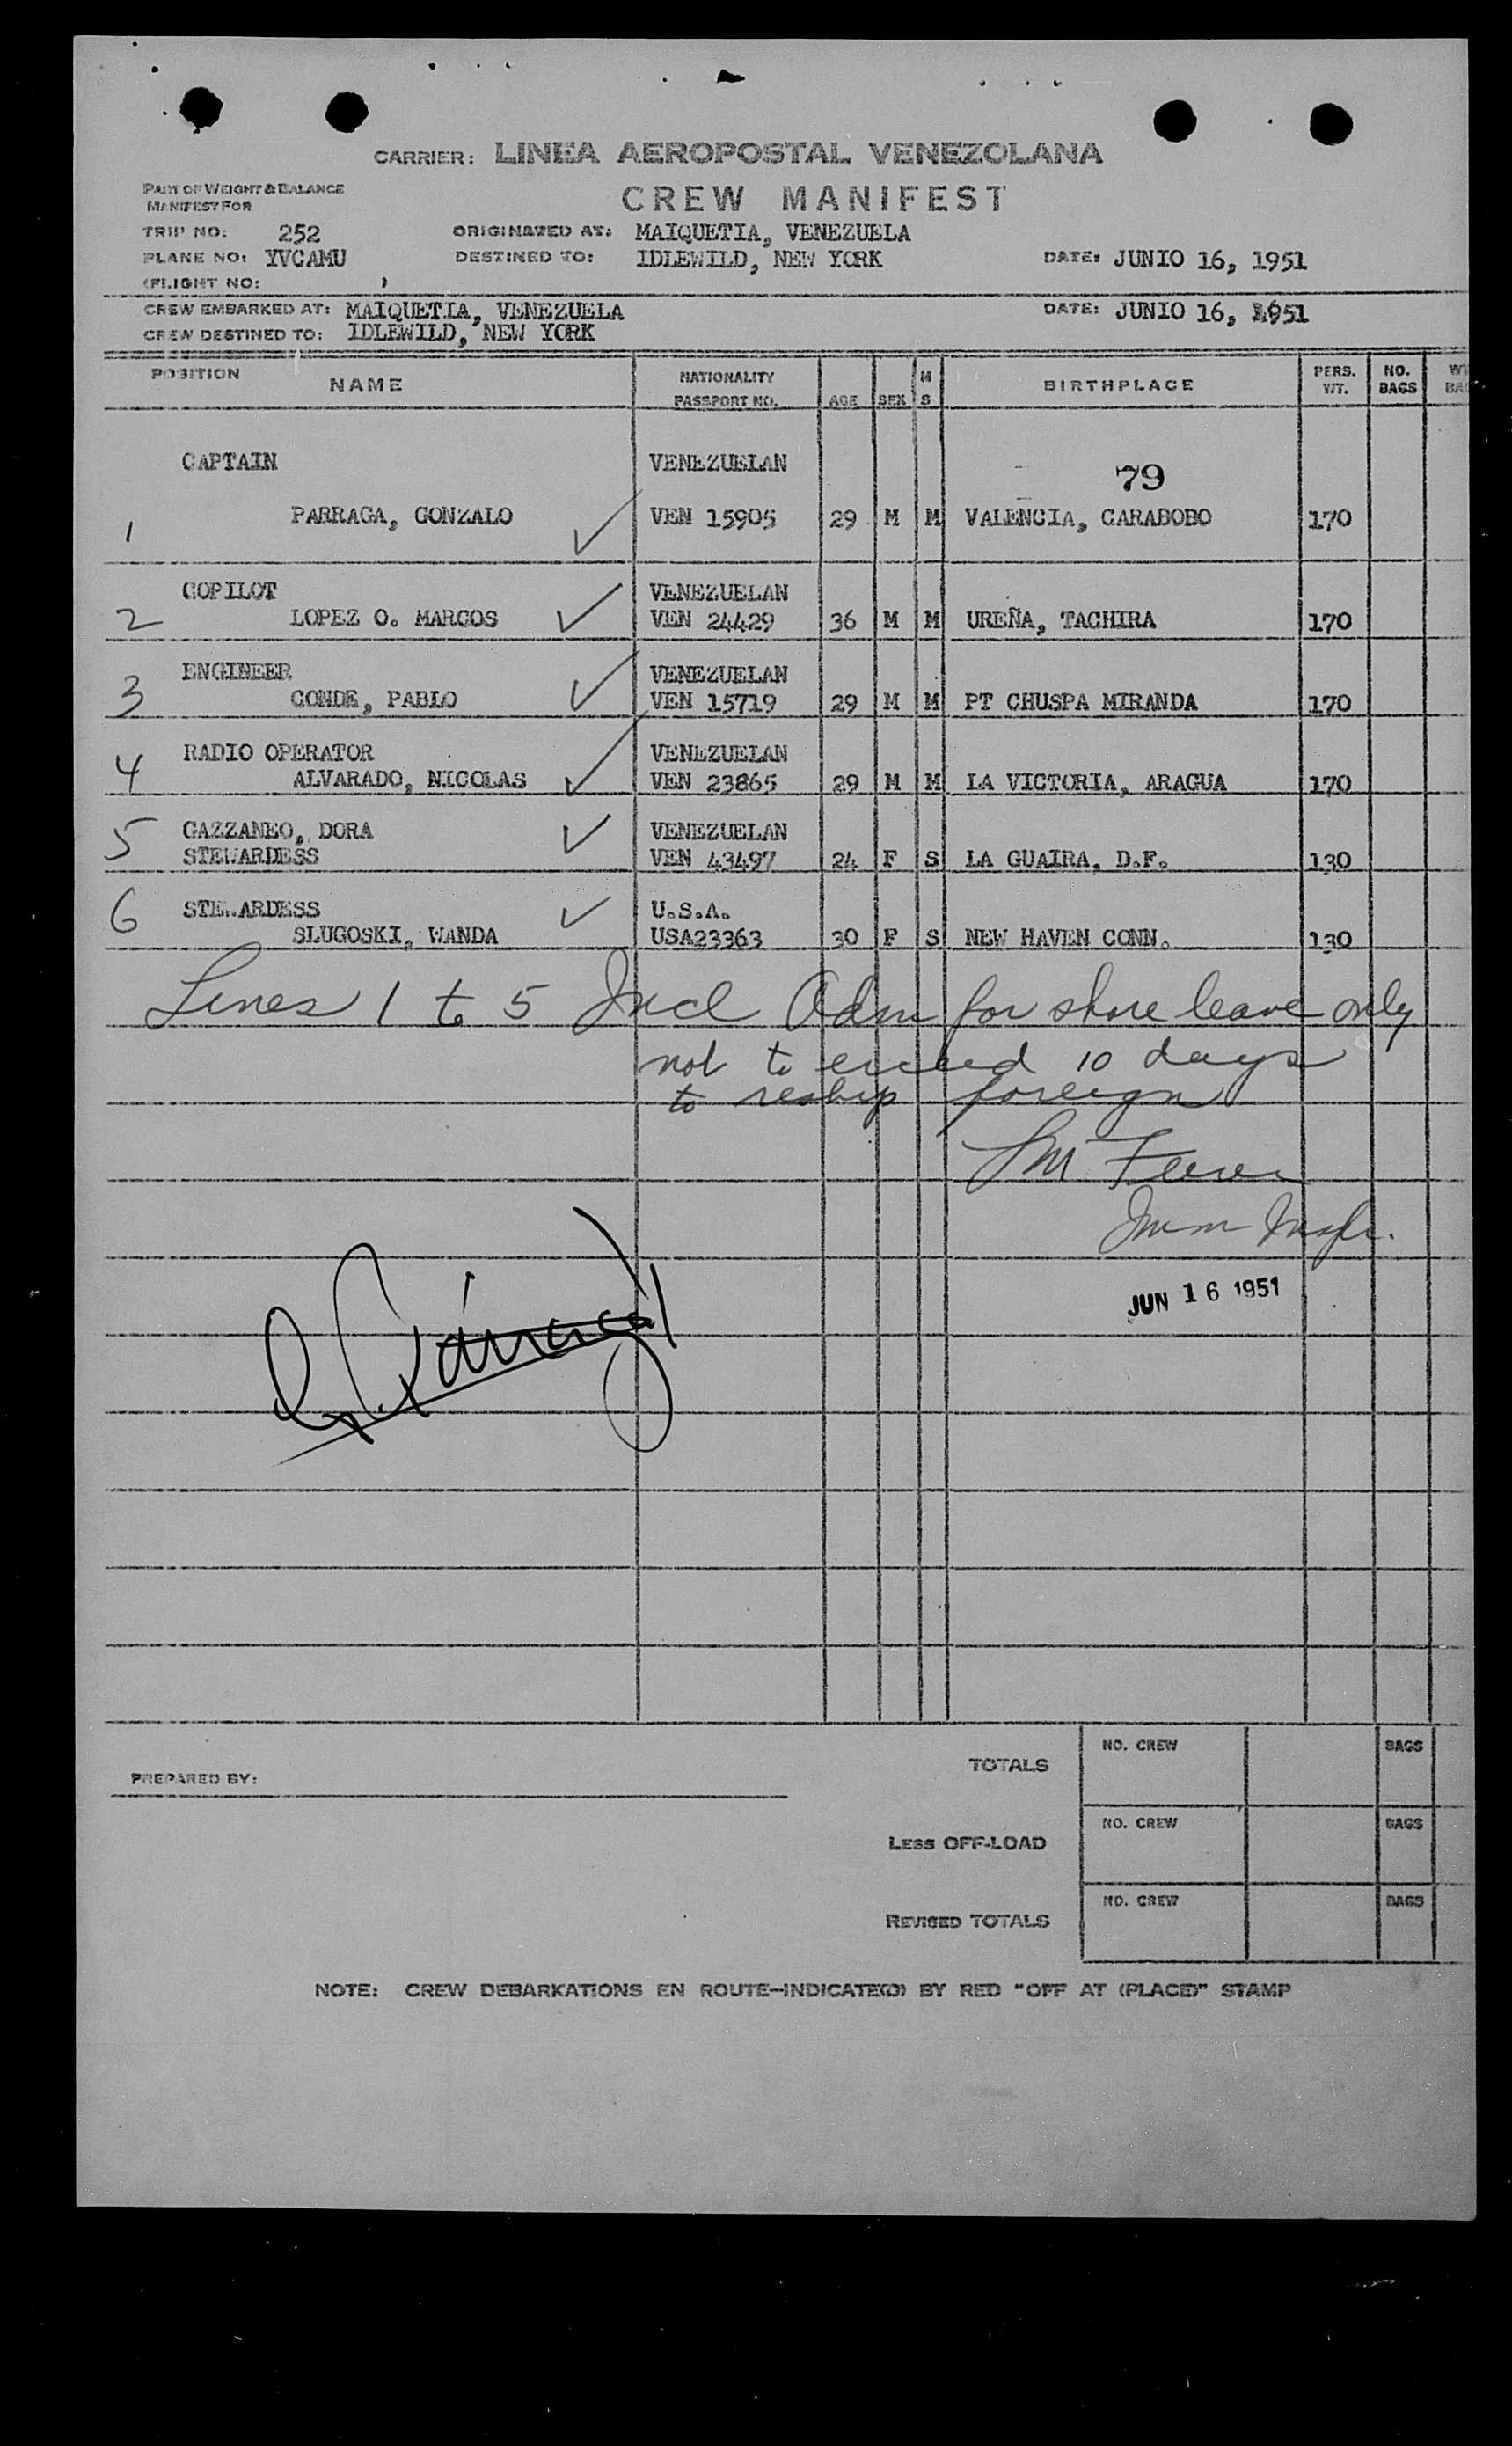 CARRIER: LINEA AEROPOSTAL VENEZOLANA
PART OF WEIGHT & BALANCE
MANIFEST FOR
CREW MANIFEST
TRIP NO: 252 ORIGINATED AT: MAIQUETIA, VENEZUELA
PLANE NO: YVCAMU DESTINED TO: IDLEWILD, NEW YORK DATE: JUNIO 16, 1951
(FLIGHT NO: )
CREW EMBARKED AT: MAIQUETIA, VENEZUELA DATE: JUNIO 16, 1951
CREW DESTINED TO: IDLEWILD, NEW YORK
POSITION NAME NATIONALITY PASSPORT NO. AGE SEX M S BIRTHPLACE PERS. WT. NO. BAGS
CAPTAIN VENEZUELAN 79
1 PARRAGA, GONZALO ✓ VEN 15905 29 M M VALENCIA, CARABOBO 170
COPILOT VENEZUELAN
2 LOPEZ O. MARCOS ✓ VEN 24429 36 M M UREÑA, TACHIRA 170
ENGINEER VENEZUELAN
3 CONDE, PABLO ✓ VEN 15719 29 M M PT CHUSPA MIRANDA 170
RADIO OPERATOR VENEZUELAN
4 ALVARADO, NICOLAS ✓ VEN 23865 29 M M LA VICTORIA, ARAGUA 170
5 GAZZANEO, DORA ✓ VENEZUELAN
STEWARDESS VEN 43497 24 F S LA GUAIRA, D.F. 130
6 STEWARDESS ✓ U.S.A.
SLUGOSKI, WANDA USA23363 30 F S NEW HAVEN CONN. 130
Lines 1 to 5 Incl Adm for shore leave only
not to exceed 10 days
to reship foreign
Imm Inspr.
JUN 16 1951
G. Párraga
PREPARED BY:
TOTALS NO. CREW BAGS
LESS OFF-LOAD NO. CREW BAGS
REVISED TOTALS NO. CREW BAGS
NOTE: CREW DEBARKATIONS EN ROUTE—INDICATE(D) BY RED "OFF AT (PLACE)" STAMP